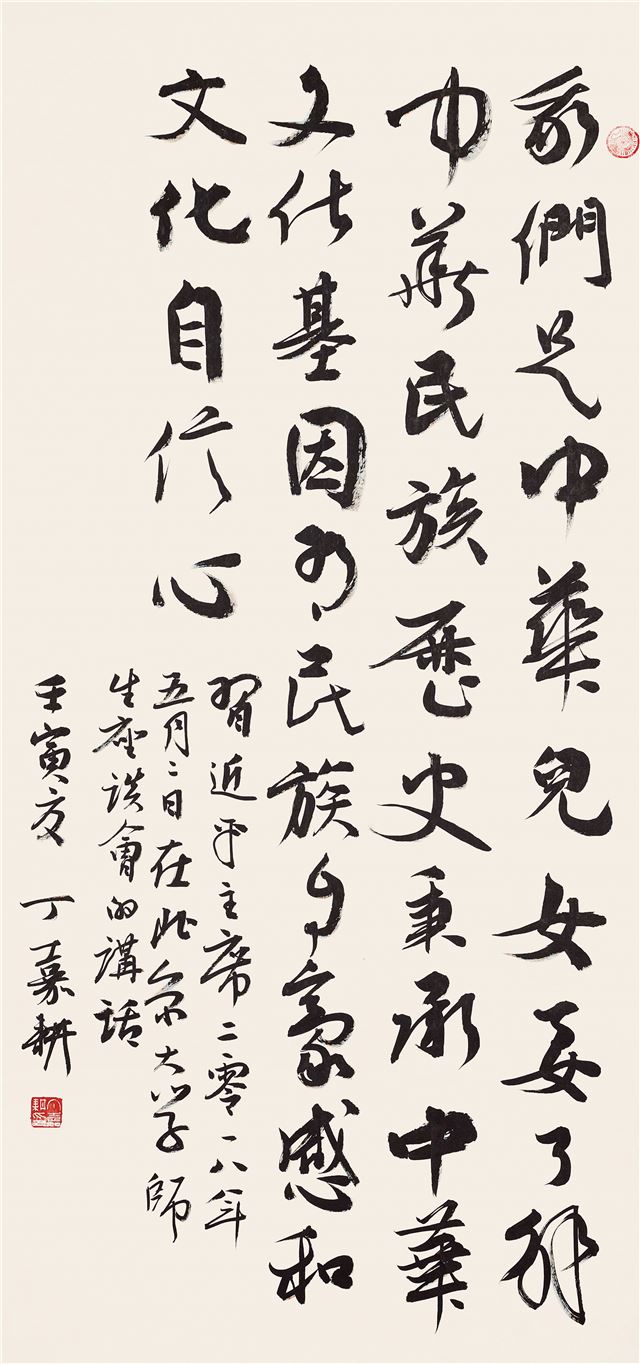 我們是中華兒女要了解
中華民族歷史秉承中華
文化基因有民族自豪感和
文化自信心
習近平主席二零一八年
五月二日在北京大學師
生座談會的講話
壬寅夏 丁嘉耕